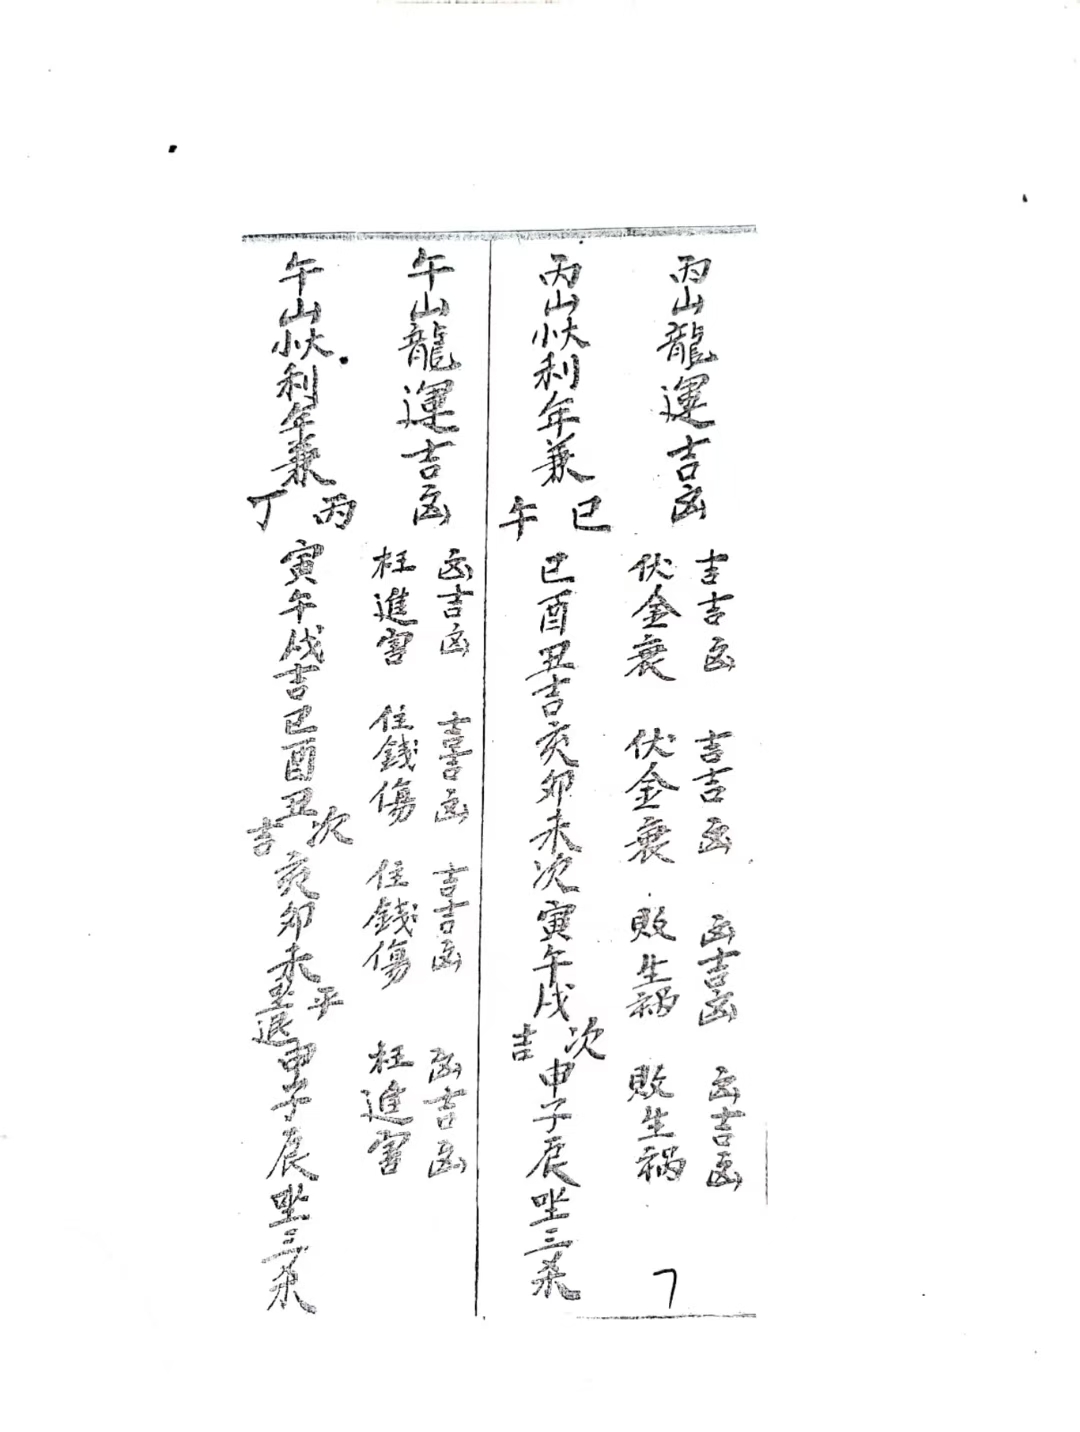 丙山龍運吉凶
吉吉凶 吉吉凶 凶吉凶 凶吉凶
伏金衰 伏金衰 敗生祸 敗生祸
丙山大利年兼巳午巳酉丑吉亥卯未次寅午戌次吉申子辰坐三杀
7
午山龍運吉凶
凶吉凶 吉吉凶 吉吉凶 凶吉凶
枉進害 住錢傷 住錢傷 枉進害
午山利年兼丙丁寅午戌吉巳酉丑次吉亥卯未平坐退申子辰坐三杀